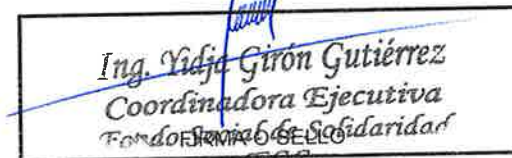 Ing. Yidja Girón Gutiérrez
Coordinadora Ejecutiva
Fondo Social de Solidaridad
FIRMA O SELLO